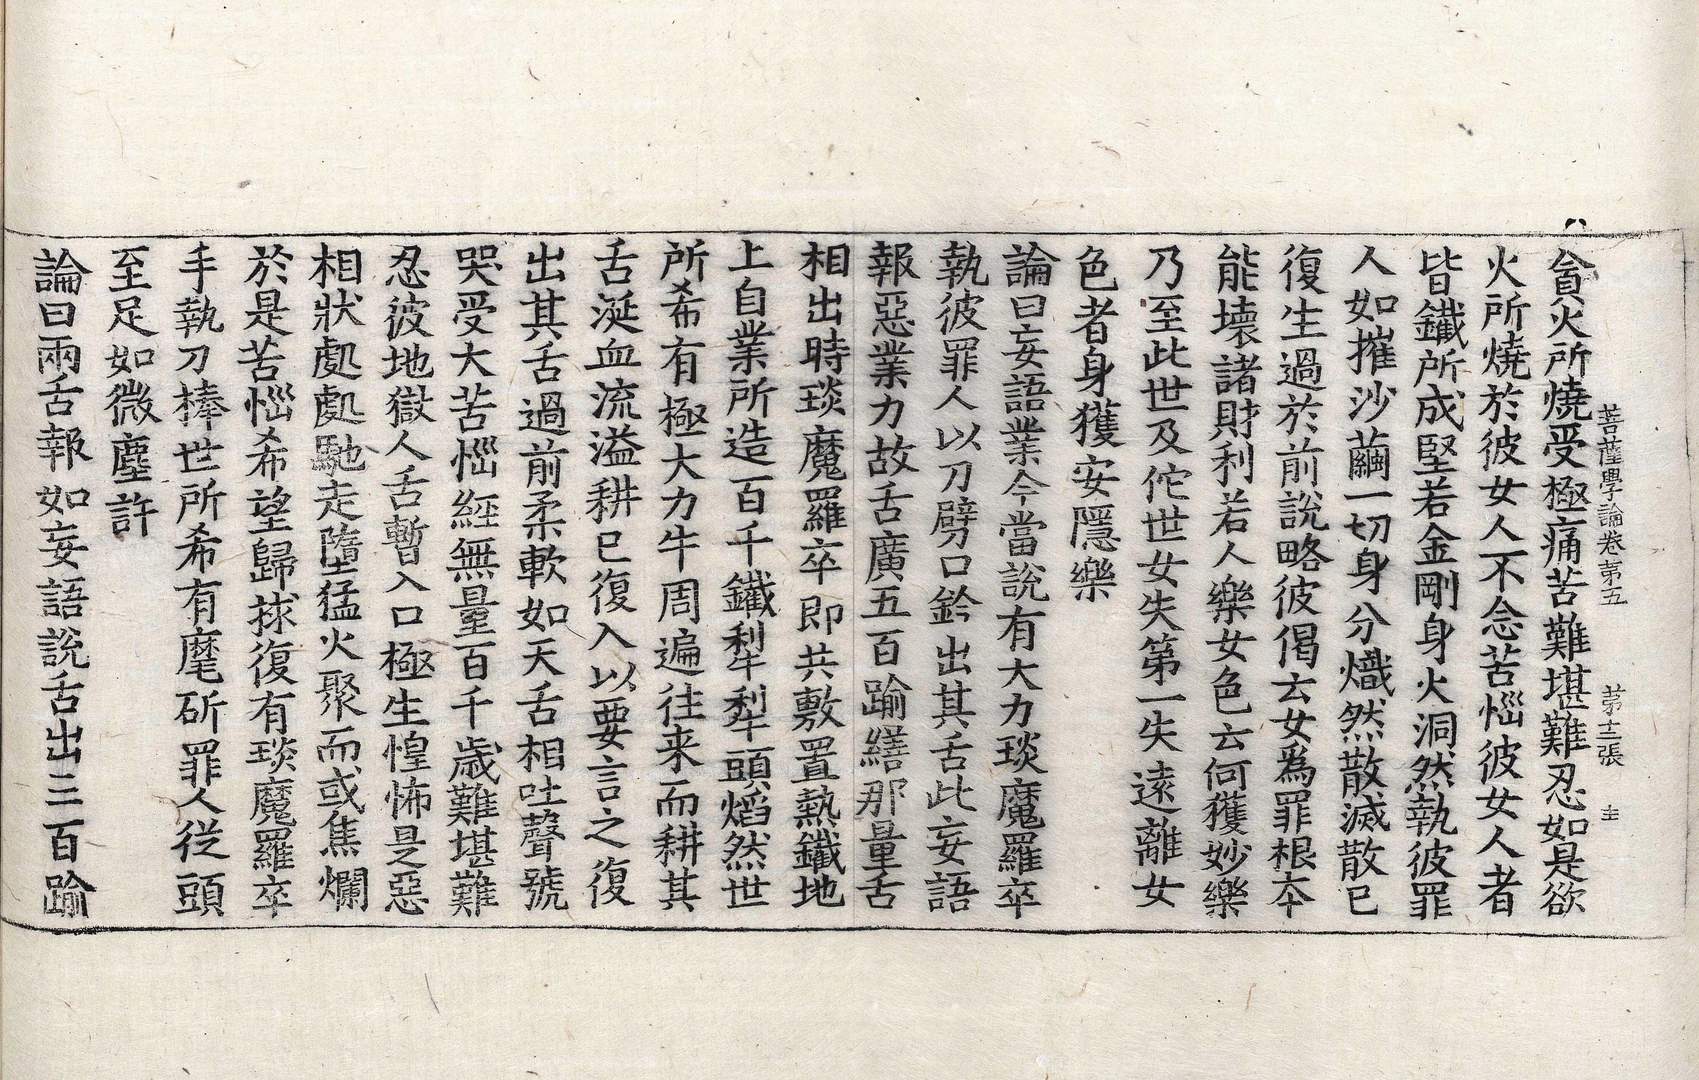 菩薩學論卷第五 第十二張 圭
貪火所燒受極痛苦難堪難忍如是欲
火所燒於彼女人不念苦惱彼女人者
皆鐵所成堅若金剛身火洞然執彼罪
人如摧沙繭一切身分熾然散滅散已
復生過於前說略彼偈云女為罪根本
能壞諸財利若人樂女色云何獲妙樂
乃至此世及佗世女失第一失遠離女
色者身獲安隱樂
論曰妄語業今當說有大力琰魔羅卒
執彼罪人以刀劈口鈐出其舌此妄語
報惡業力故舌廣五百踰繕那量舌
相出時琰魔羅卒即共敷置熱鐵地
上自業所造百千鐵犁犁頭熖然世
所希有極大力牛周遍往来而耕其
舌涎血流溢耕已復入以要言之復
出其舌過前柔軟如天舌相吐聲號
哭受大苦惱經無量百千歲難堪難
忍彼地獄人舌暫入口極生惶怖是惡
相狀處處馳走墮猛火聚而或焦爛
於是苦惱希望歸捄復有琰魔羅卒
手執刀棒世所希有麾斫罪人從頭
至足如微塵許
論曰兩舌報如妄語說舌出三百踰